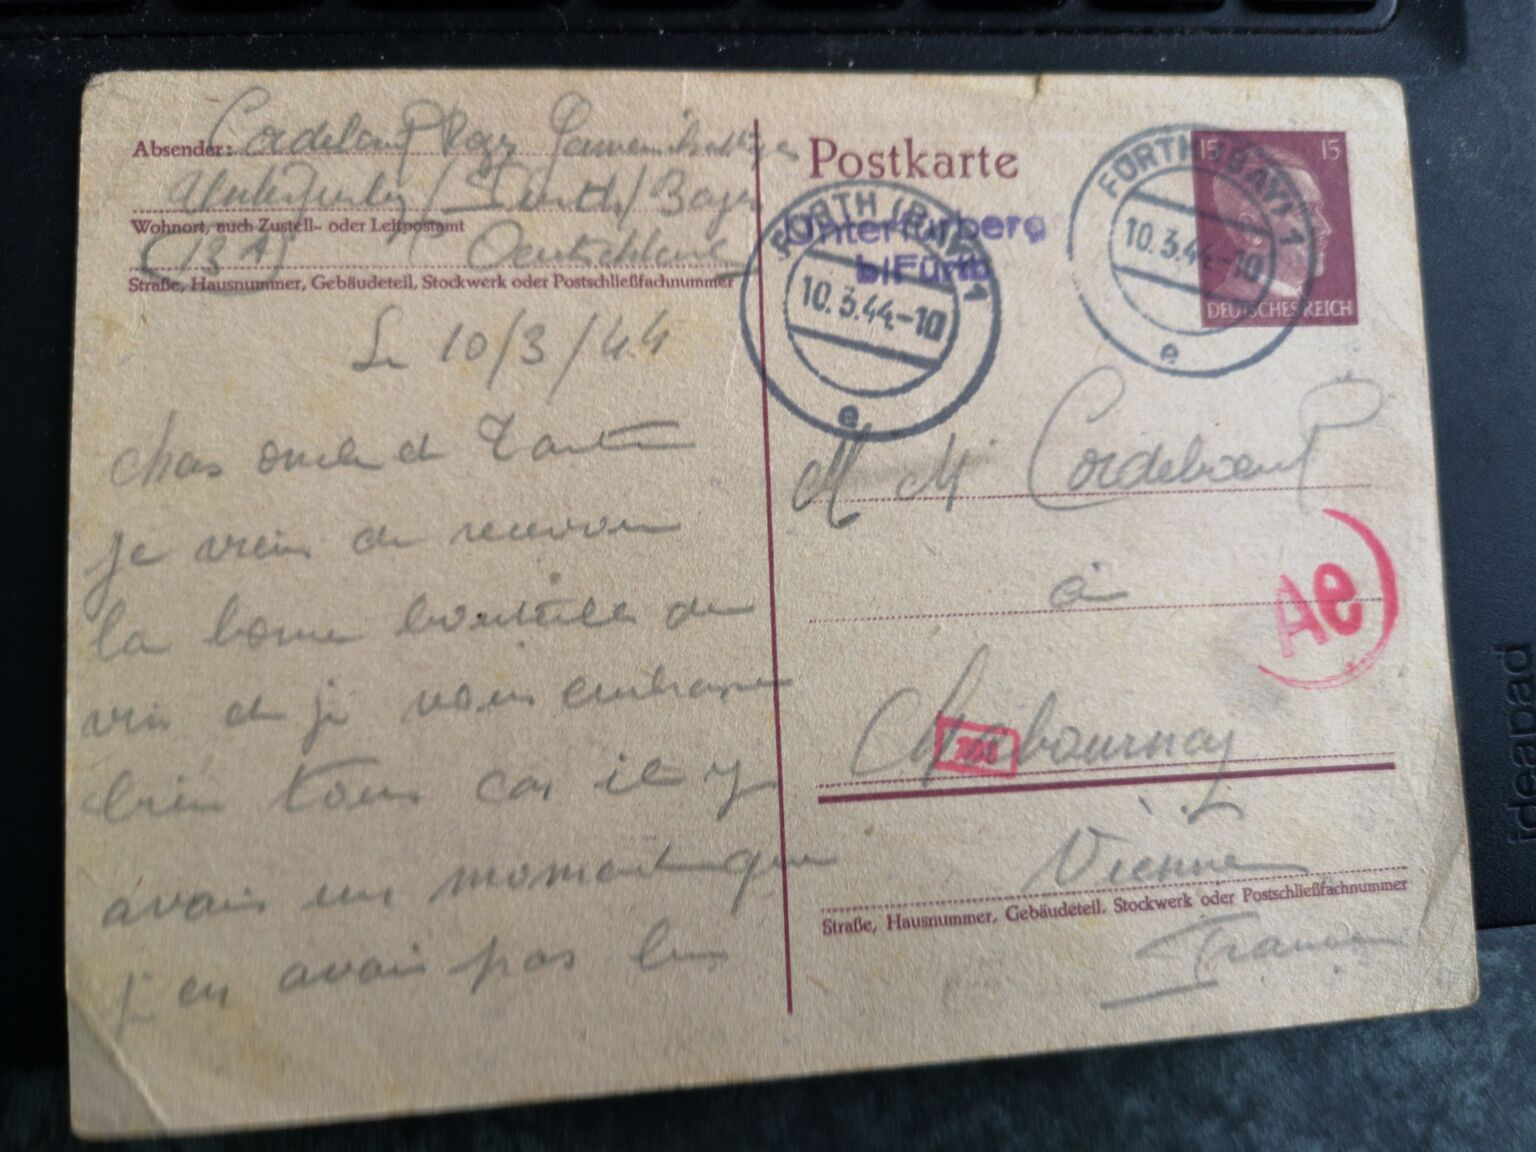 Absender: Cordeboeuf
Unterfurberg / Fürth / Bayer
Wohnort, auch Zustell- oder Leitpostamt
(13A) Deutschland
Straße, Hausnummer, Gebäudeteil, Stockwerk oder Postschließfachnummer
Le 10/3/44
chers oncle et Tante
je viens de recevoir
la bonne bouteille de
vin et je vous embrasse
bien tous car il y
avais un moment que
j en avais pas bu
Postkarte
15 15
DEUTSCHES REICH
FÜRTH (BAY) 1
10.3.44-10
e
FÜRTH (BAY) 1
10.3.44-10
e
Unterfürberg
b/Fürth
M M Cordeboeuf
à
Ae
Chabournay
Vienne
Straße, Hausnummer, Gebäudeteil, Stockwerk oder Postschließfachnummer
France
ideapad